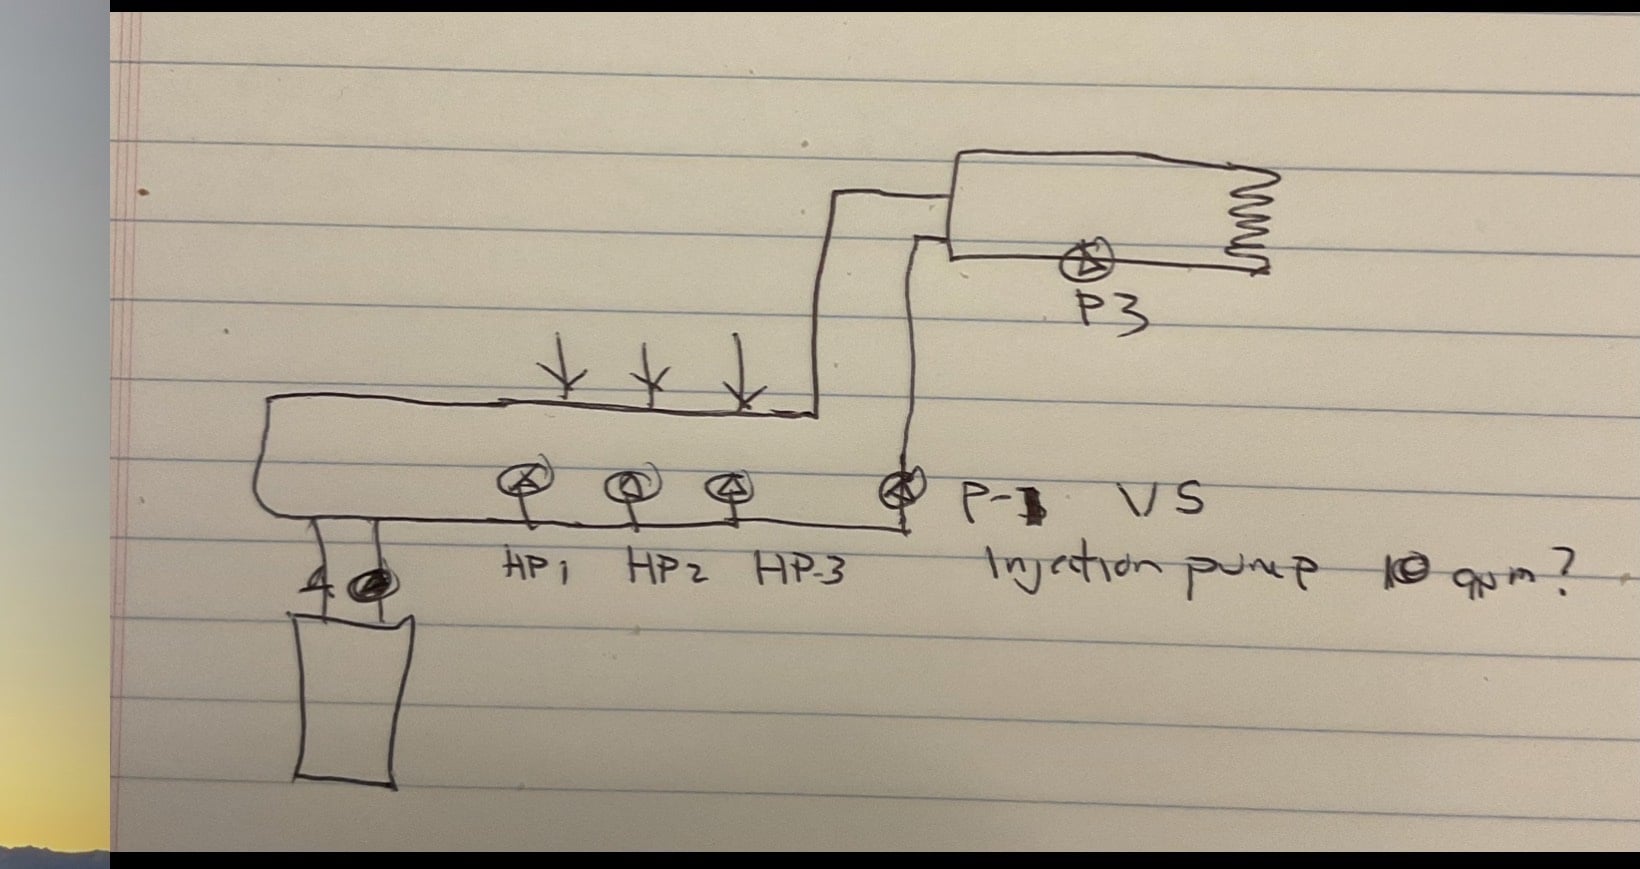 P3
P-1 VS
HP1 HP2 HP-3
Injection pump 10 gpm?